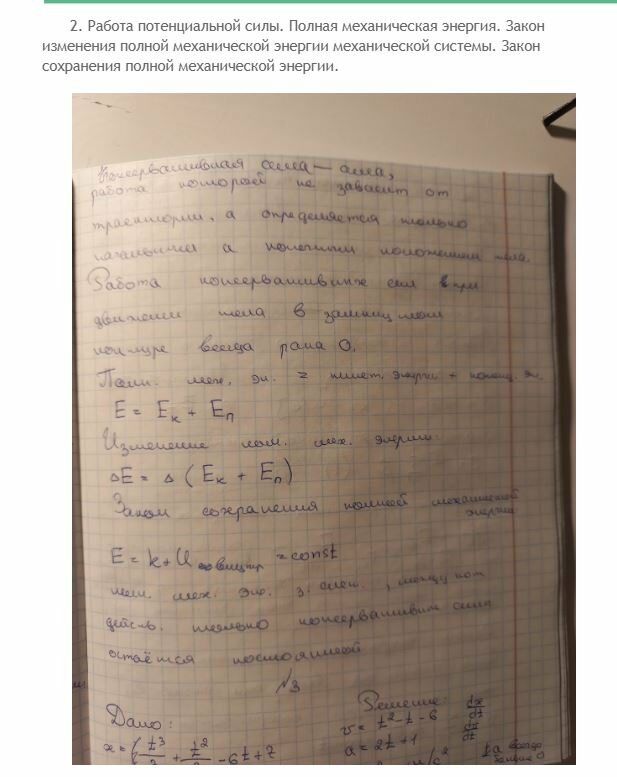 2. Работа потенциальной силы. Полная механическая энергия. Закон
изменения полной механической энергии механической системы. Закон
сохранения полной механической энергии.
Консервативная сила – сила,
работа которой не зависит от
траектории, а определяется только
начальным и конечным положением тела.
Работа консервативных сил при
движении тела в замкнутом
контуре всегда рана 0.
Полн. мех. эн. = кинет. энергии + потенц. эн.
E = Eк + Eп
Изменение пол. мех. энергии
ΔE = Δ (Eк + Eп)
Закон сохранения полной механической
энергии
E = k + U = const
мех. эн. з. сист., между кот
действ. только консерватив. сила
остаётся постоянной
№3
Дано:
Решение:
x = t³ + t² - 6t + 7
v = t² - t - 6
dx
dt
a = 2t + 1
dt
всегда